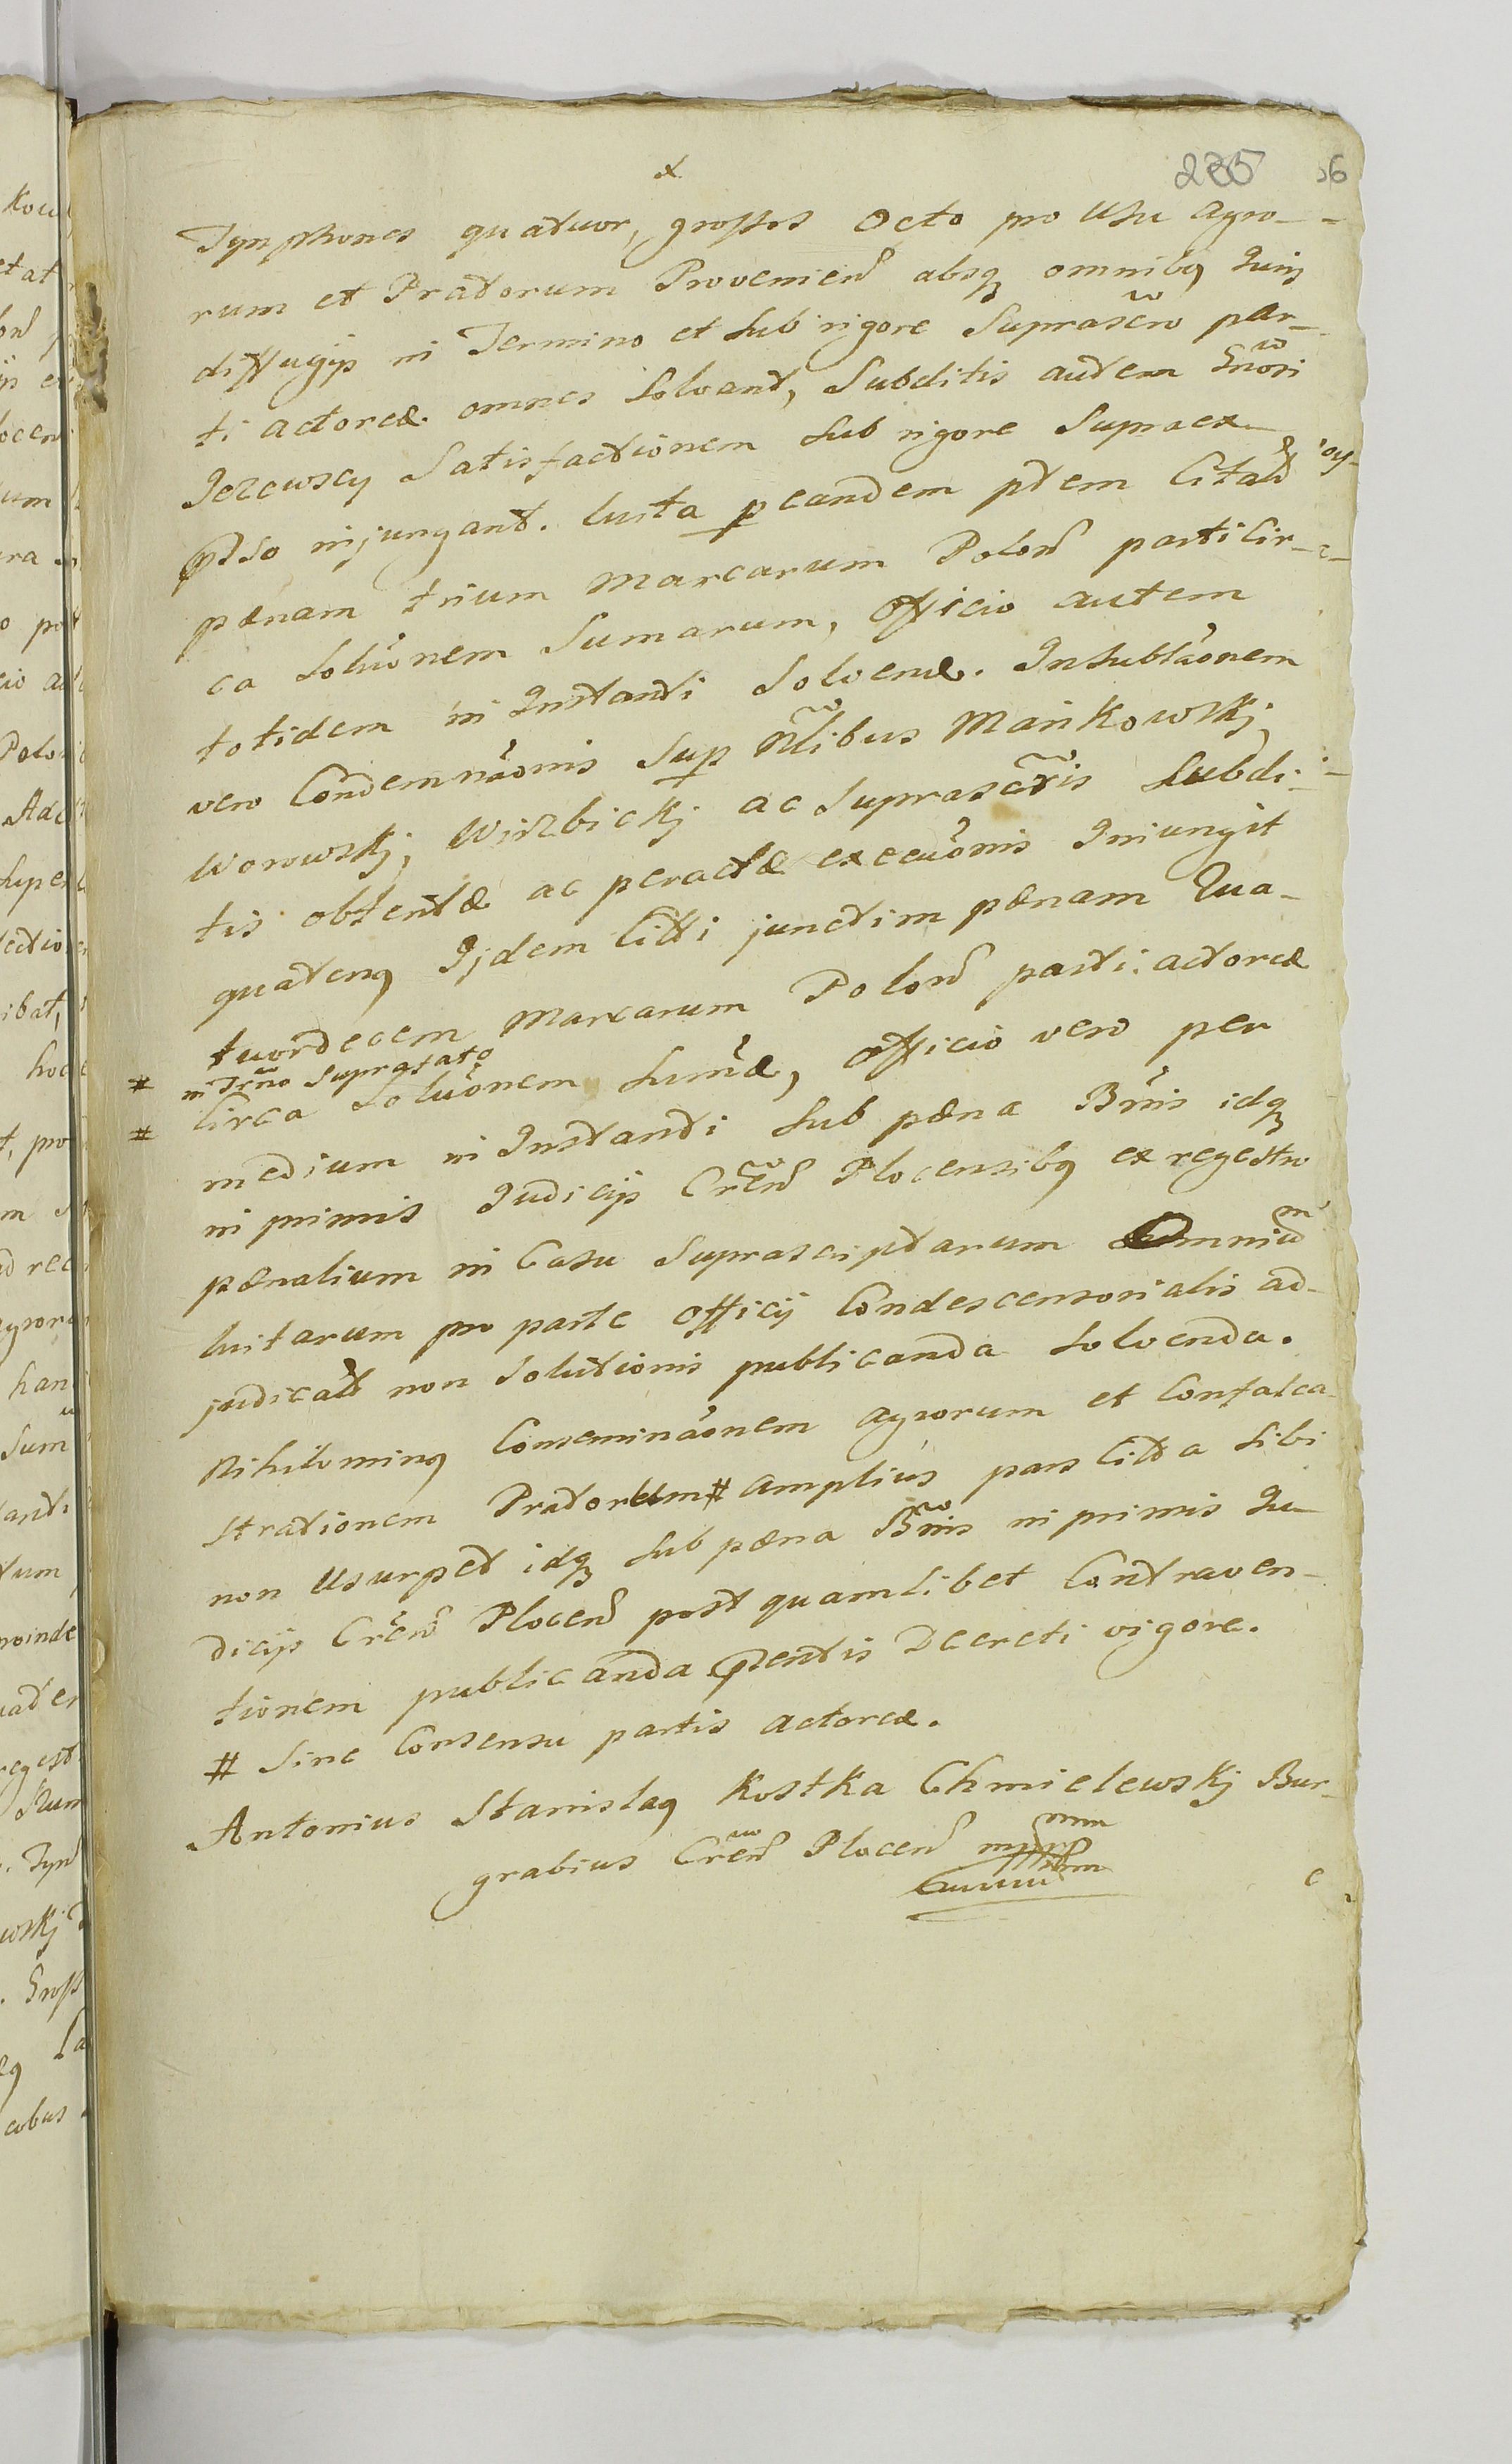 235 36
Tynphones quatuor, grossos Octo pro Usu agro-
rum et Pratorum Provenien absq omnibq Juris
diffugijs in Termino et sub rigore Suprascro par-
ti actoreæ omnes Solvant, Subditis autem Gnosi
Jezewscy Satisfactionem sub rigore Supraex-
psso injungant. Luita p eandem ptem Citat
pænam trium Marcarum Polon parti Cir-
ca Soluonem Sumarum, Officio autem
totidem in Instanti Solvenæ. In Sublaonem
vero Condemnaonis Sup Nlibus Mankowskj,
Worowskj, Wirzbickj ac Suprascris Subdi-
tis obtentæ ac peractæ execuonis Iniungit
quatenq Ijdem Citti junctim pænam Qua-
tuordecem Marcarum Polon parti actoreæ
# in Trno Supratato
# Circa Soluonem Sumæ, officio vero per
medium in Instanti sub pæna Bnis idq
in primis Iudicijs Cren Plocensibq ex regestro
pænalium in Casu Suprascriptarum Omnium
luitarum pro parte Officij Condescensorialis ad-
judicat non Solutionis publicanda Solvenda.
Nihilominq Conseminaonem agrorum et Confalca-
strationem Pratorum # amplius pars Citta Sibi
non Usurpet idq sub pæna Bnis in primis Iu-
dicijs Cren Plocen post quamlibet Contraven-
tionem publicanda pntis Decreti vigore.
# Sine Consensu partis actoreæ.
Antonius Stanislaq Kostka Chmielewskj Bur-
grabius Cren Plocen mpp